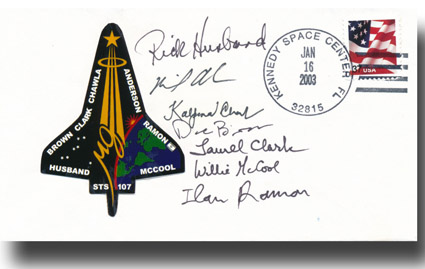 BROWN CLARK CHAWLA ANDERSON RAMON
HUSBAND MCCOOL
STS 107
Rick Husband
Kalpana Ch
Dave Brown
Laurel Clark
Willie McCool
Ilan Ramon
KENNEDY SPACE CENTER FL
JAN
16
2003
32815
USA